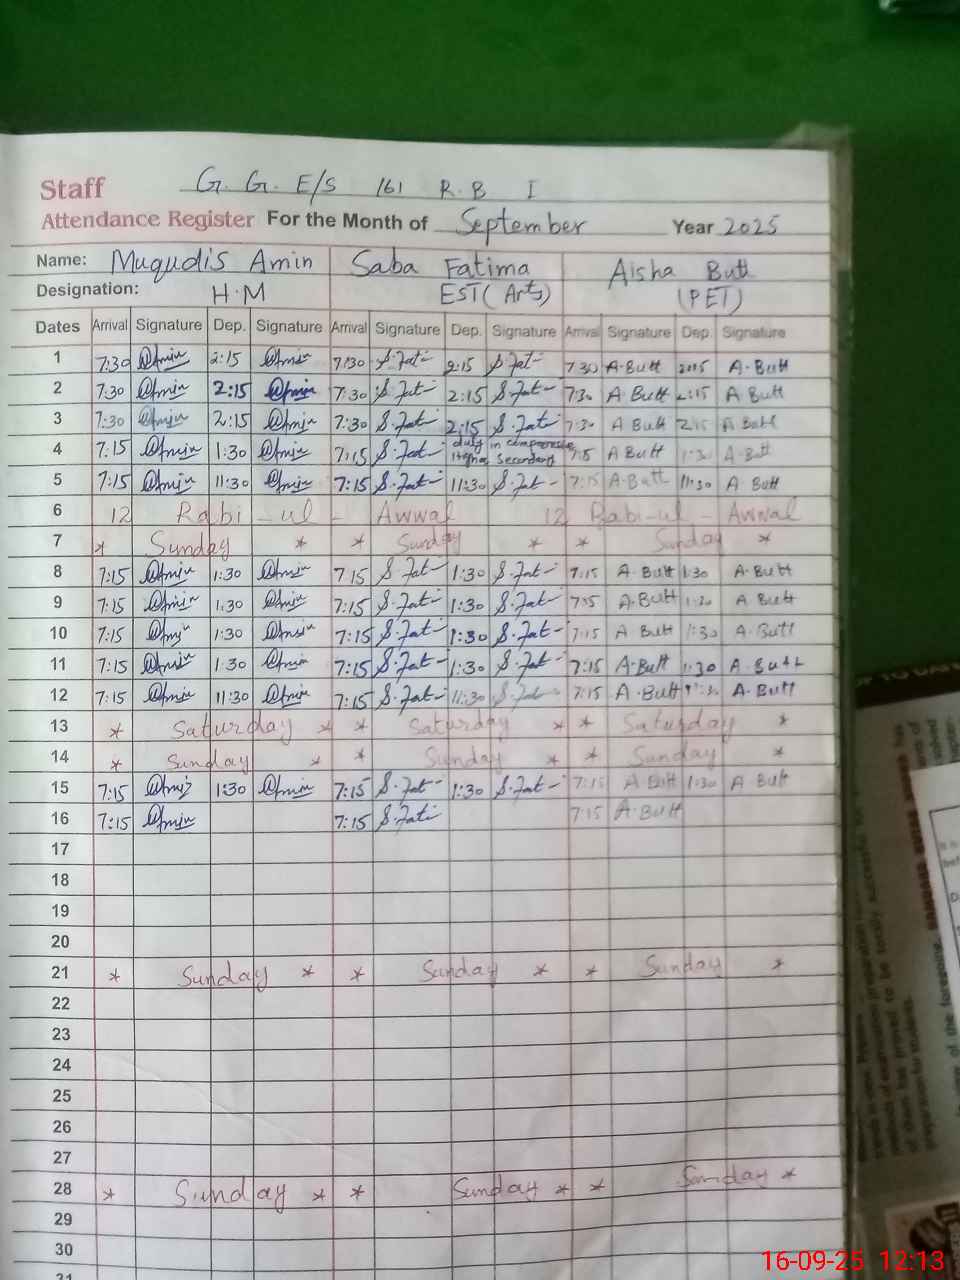 Staff G. G. E/S 161 R. B I
Attendance Register For the Month of September Year 2025
Name: Muqudis Amin Saba Fatima Aisha Butt
Designation: H.M EST (Arts) (PET)
Dates Arrival Signature Dep. Signature Arrival Signature Dep. Signature Arrival Signature Dep. Signature
1 7:30 @min 2:15 @min 7:30 S.Fati 2:15 S.Fat 7 30 A.Butt A.Butt
2 7:30 @min 2:15 @min 7:30 S.Fat 2:15 S.Fat 7:30 A Butt 2:15 A Butt
3 7:30 @min 2:15 @min 7:30 S.Fati 2:15 S.Fati 7:30 A Butt 2:15 A Butt
4 7:15 @min 1:30 @min 7:15 S.Fat duty in 7:15 A Butt 1:30 A-Butt
Secondary
5 7:15 @min 11:30 @min 7:15 S.Fat 11:30 S.Fat 7:15 A.Butt 11:30 A Butt
6 12 Rabi-ul-Awwal 12 Rabi-ul-Awwal
7 * Sunday * * Sunday * * Sunday *
8 7:15 @min 1:30 @min 7 15 S.Fat 1:30 S.Fat 7:15 A.Butt 1:30 A.Butt
9 7:15 @min 1:30 @min 7:15 S.Fati 1:30 S.Fat 7:15 A.Butt 1:30 A Butt
10 7:15 @min 1:30 @min 7:15 S.Fat 1:30 S.Fat 7:15 A Butt 1:30 A.Butt
11 7:15 @min 1:30 @min 7:15 S.Fat 1:30 S.Fat 7:15 A.Butt 1:30 A.Butt
12 7:15 @min 11:30 @min 7:15 S.Fat 11:30 S.Fat 7:15 A.Butt 11:30 A.Butt
13 * Saturday * * Saturday * * Saturday *
14 * Sunday * * Sunday * * Sunday *
15 7:15 @min 1:30 @min 7:15 S.Fat 1:30 S.Fat 7:15 A Butt 1:30 A.Butt
16 7:15 @min 7:15 S.Fati 7:15 A.Butt
17
18
19
20
21 * Sunday * * Sunday * * Sunday *
22
23
24
25
26
27
28 * Sunday * * Sunday * * Sunday *
29
30
31
16-09-25 12:13